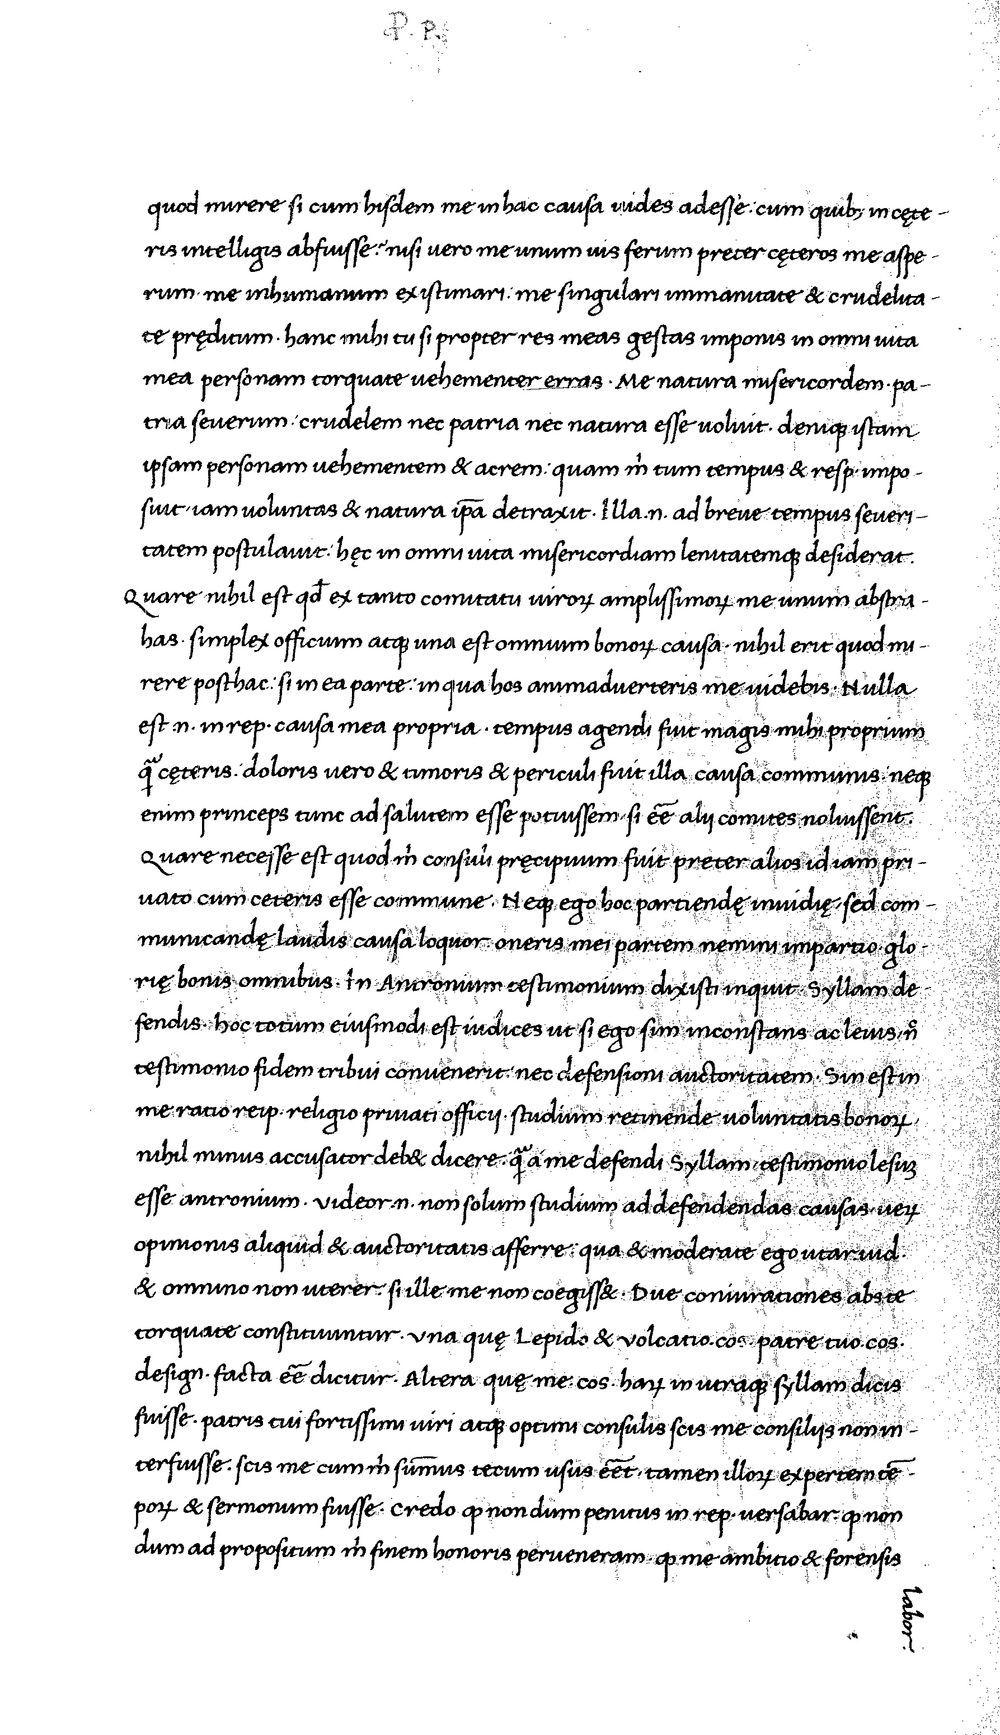 P. P.
quod mirere si cum hisdem me in hac causa uides adesse: cum quib; in cęte-
ris intelligis abfuisse: nisi uero me unum uis ferum preter cęteros me aspe-
rum me inhumanum existimari: me singulari immanitate & crudelita-
te pręditum. hanc mihi tu si propter res meas gestas imponis in omni uita
mea personam torquate uehementer erras. Me natura misericordem. pa-
tria seuerum: crudelem nec patria nec natura esse uoluit. deniqꝫ istam
ipsam personam uehementem & acrem: quam m̊ tum tempus & resp. impo-
suit. iam uoluntas & natura ip̄a detraxit. Illa .n. ad breue tempus seueri-
tatem postulauit: hęc in omni uita misericordiam lenitatemqꝫ desiderat.
Quare nihil est qđ ex tanto comitatu uiroꝝ amplissimoꝝ me unum abstra-
has. simplex officium atqꝫ una est omnium bonoꝝ causa. nihil erit quod mi-
rere posthac: si in ea parte: in qua hos animaduerteris me uidebis. Nulla
est .n. in rep. causa mea propria. tempus agendi fuit magis mihi proprium
q̃ cęteris: doloris uero & timoris & periculi fuit illa causa communis. neqꝫ
enim princeps tunc ad salutem esse potuissem. si eē̄ alij comites noluissent.
Quare necesse est quod m̊ consuli pręcipuum fuit preter alios id iam pri-
uato cum ceteris esse commune. Neqꝫ ego hoc partiendę inuidię, sed com-
municandę laudis causa loquor. oneris mei partem nemini impartio. glo-
rię bonis omnibus. In Antronium testimonium dixisti inquit. Syllam de
fendis. hoc totum eiusmodi est iudices ut si ego sim inconstans ac leuis, n̊
testimonio fidem tribui conuenerit: nec defensioni auctoritatem. Sin est in
me ratio reip. religio priuati officij. studium retinende uoluntatis bonoꝝ.
nihil minus accusator deb& dicere. q̃ a me defendi Syllam. testimonio lesuꝫ
esse antronium. Videor .n. non solum studium ad defendendas causas. ueꝝ
opinionis aliquid & auctoritatis afferre: qua & moderate ego utar iud.
& omnino non uterer. si ille me non coegiss&. Due coniurationes abs te
torquate constituuntur. Vna quę Lepido & Volcatio. cos. patre tuo. cos.
design. facta eē̄ dicitur. Altera quę me. cos. haꝝ in utraqꝫ syllam dicis
fuisse. patris tui fortissimi uiri atqꝫ optimi consulis scis me consilijs non in-
terfuisse. scis me cum m̊ sum̄us tecum usus eēt̄. tamen illoꝝ expertem tē-
poꝝ & sermonum fuisse. Credo ꝙ non dum penitus in rep. uersabar. ꝙ non
dum ad propositum m̊ finem honoris perueneram. ꝙ me ambitio & forensis
labor.